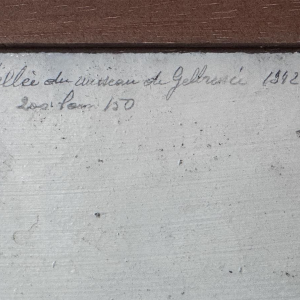 allée du ruisseau de Gelbressée 1942
200 Pour 150